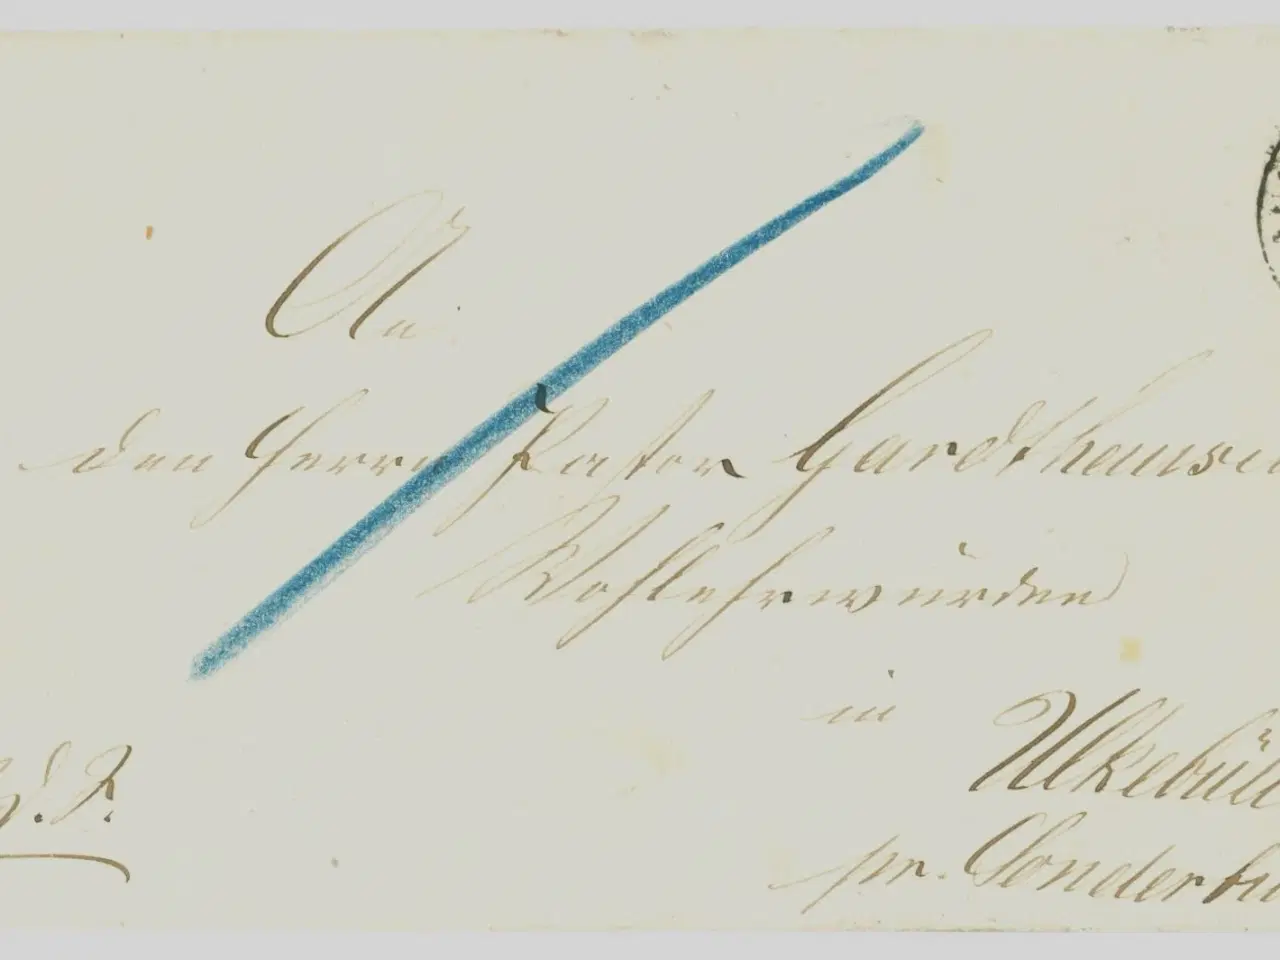 An
den Herrn Pastor Gardthausen
Wohlehrwürden
in Ulkebüll
pr. Sonderbu